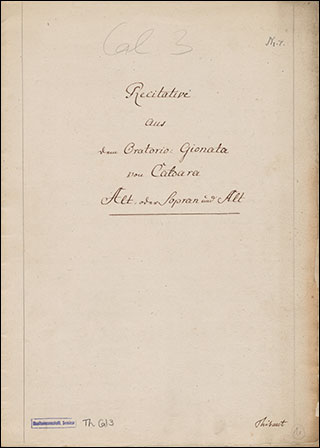 Cal 3
Nr. 7.
Recitative
aus
dem Oratorio: Gionata
von Càlsara
Alt. oder Sopran und Alt
Th Cal 3
Thibaut